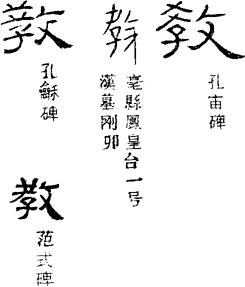 教
孔宙碑
教
亳縣鳳皇台一号
漢墓剛卯
教
孔龢碑
教
范式碑